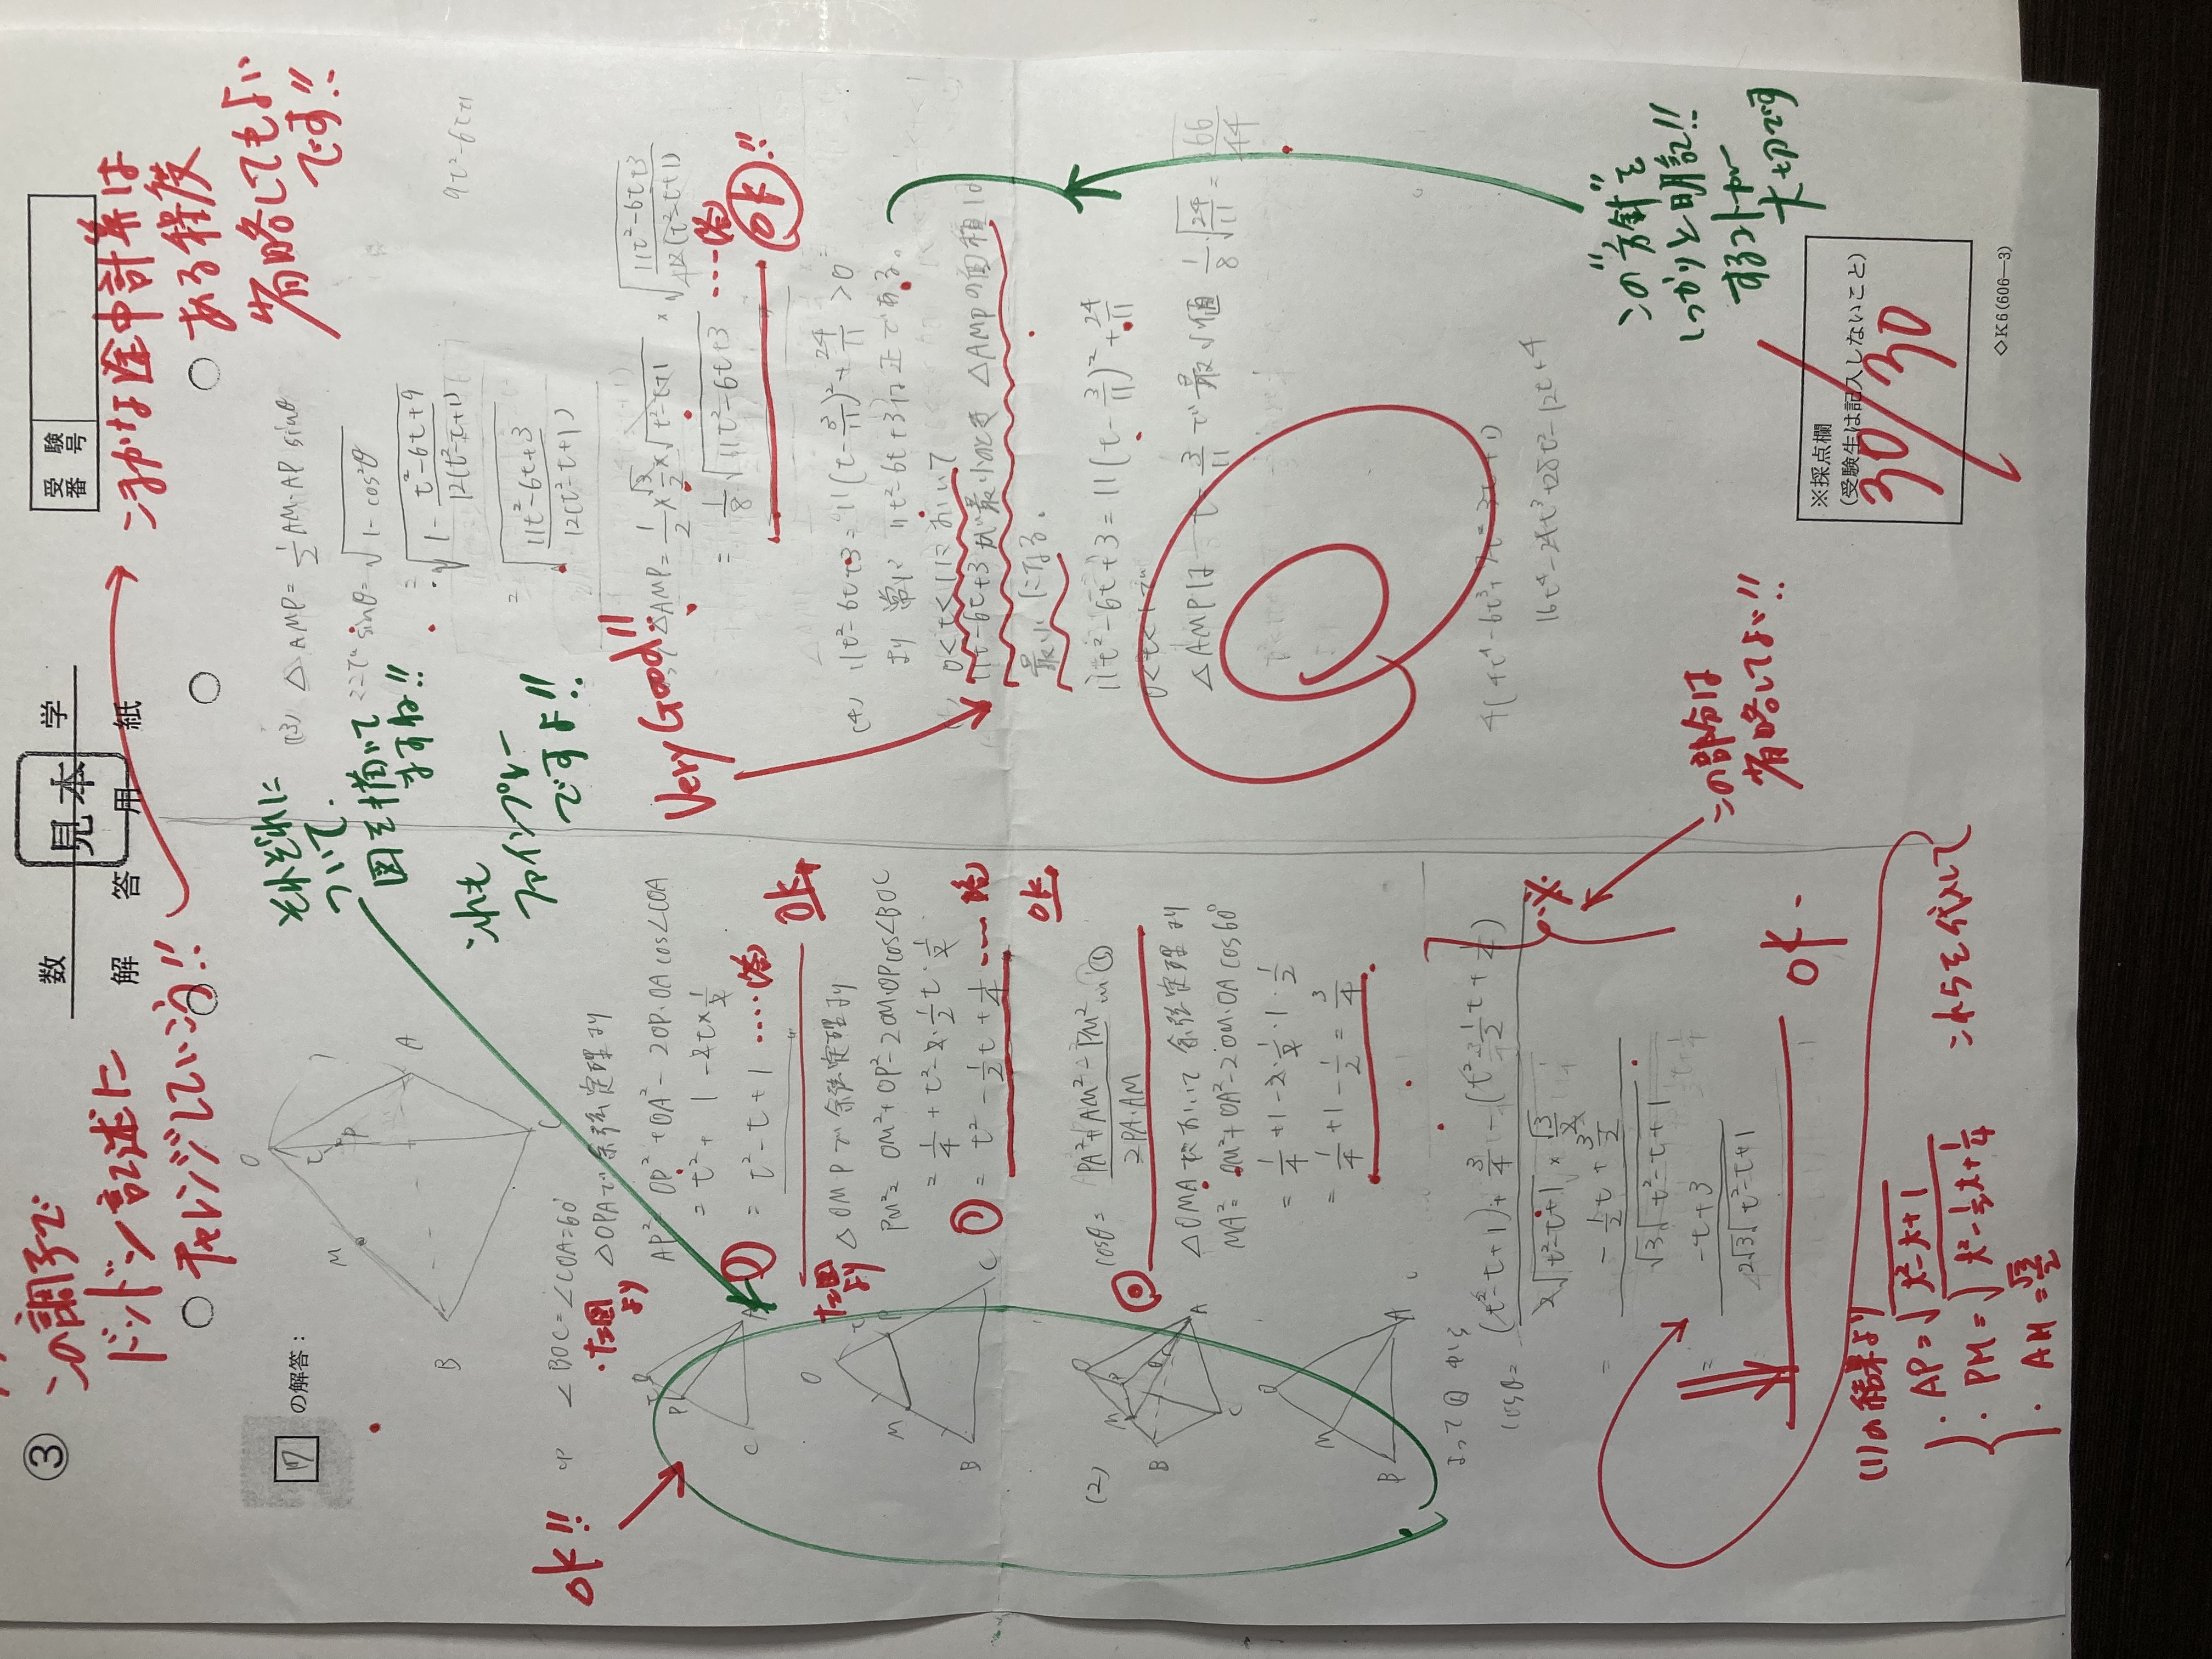 ③
数学
見本
解答用紙
受験番号
この調子で
ドンドン記述に
チャレンジしていこう!!
こまかな途中計算は
ある程度
省略してもよい
です!!
7 の解答:
O
M
P
t
A
B
C
(1) ∠BOC=∠COA=60°
左図より
△OPAで余弦定理より
AP²=OP²+OA²-2OP・OA cos∠COA
=t²+1-2t×1/2
=t²-t+1 ……答
OK
左図より
△OMPで余弦定理より
PM²=OM²+OP²-2OM・OPcos∠BOC
=1/4+t²-2・1/2t・1/2
=t²-1/2t+1/4 ……答
OK
OK!!
(2)
cosθ=PA²+AM²-PM²/2PA・AM …①
△OMAにおいて余弦定理より
MA²=OM²+OA²-2・OM・OA cos60°
=1/4+1-2・1/2・1・1/2
=1/4+1-1/2=3/4
よって①から
cosθ=(t²-t+1)+3/4-(t²-1/2t+1/4)/2√t²-t+1×√3/2
…※
=-1/2t+3/2/√3√t²-t+1
=-t+3/2√3√t²-t+1
OK
この部分は
省略してよい!!
(1)の結果より
・AP=√t²-t+1
・PM=√t²-1/2t+1/4
・AM=√3/2
これらを代入して
それぞれに
ついて
図を描いて
ますね!!
これも
ファインプレー
ですよ!!
(3) △AMP=1/2AM・AP sinθ
ここで sinθ=√1-cos²θ
=√1-t²-6t+9/12(t²-t+1)
=√11t²-6t+3/12(t²-t+1)
9t²-6t+1
△AMP=1/2×√3/2×√t²-t+1×√11t²-6t+3/12(t²-t+1)
=1/8√11t²-6t+3 ……答
OK!!
Very Good!!
(4) 11t²-6t+3=11(t-3/11)²+24/11>0
より 常に 11t²-6t+3は正である。
0<t<1において
11t²-6t+3が最小のとき △AMPの面積は
最小になる。
11t²-6t+3=11(t-3/11)²+24/11
0<t<1で
△AMPは t=3/11で最小値 1/8・√24/11=√66/44
この"方針"を
しっかりと明記!!
するコトが
大切です
16t⁴-24t³+28t²-12t+4
※採点欄
(受験生は記入しないこと)
30/30
◇K6(606—3)